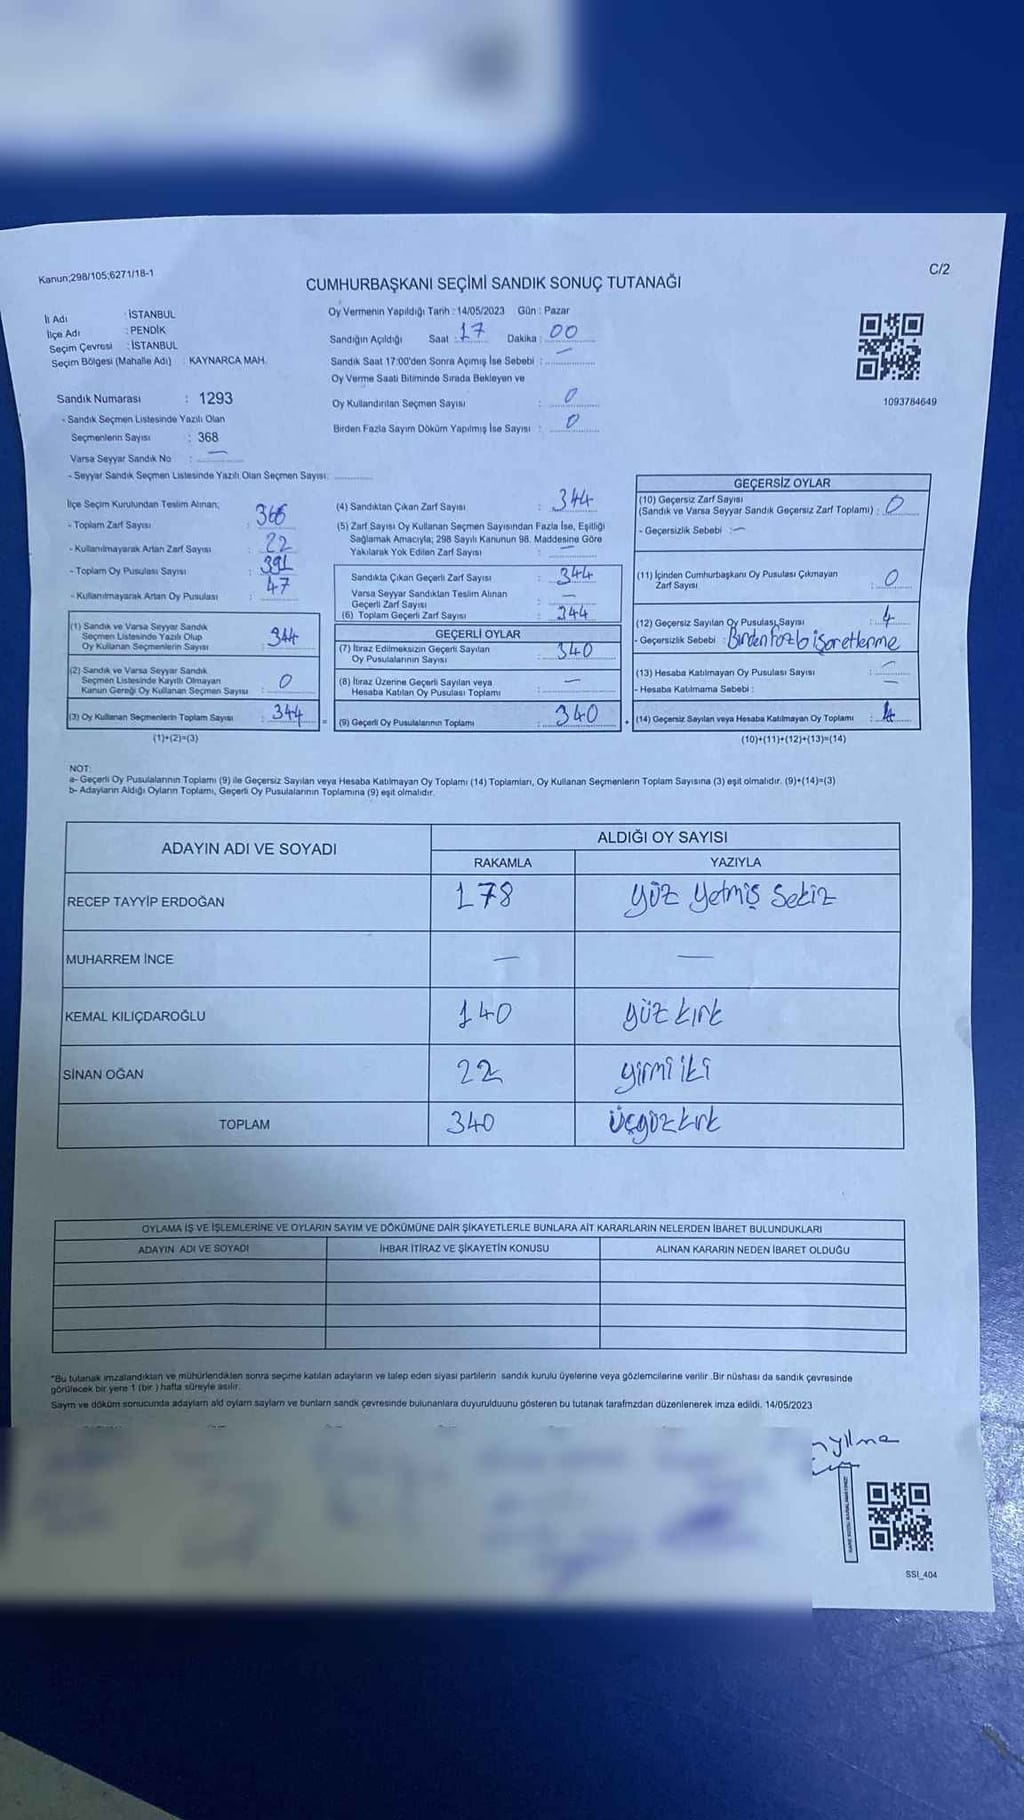 Kanun;298/105;6271/18-1
C/2
CUMHURBAŞKANI SEÇİMİ SANDIK SONUÇ TUTANAĞI
İl Adı : İSTANBUL
İlçe Adı : PENDİK
Seçim Çevresi : İSTANBUL
Seçim Bölgesi (Mahalle Adı) : KAYNARCA MAH.
Oy Vermenin Yapıldığı Tarih : 14/05/2023 Gün : Pazar
Sandığın Açıldığı Saat : 17 Dakika : 00
Sandık Saat 17:00'den Sonra Açımış İse Sebebi : —
Oy Verme Saati Bitiminde Sırada Bekleyen ve
Oy Kullandırılan Seçmen Sayısı : 0
Birden Fazla Sayım Döküm Yapılmış İse Sayısı : 0
1093784649
Sandık Numarası : 1293
- Sandık Seçmen Listesinde Yazılı Olan
Seçmenlerin Sayısı : 368
Varsa Seyyar Sandık No : —
- Seyyar Sandık Seçmen Listesinde Yazılı Olan Seçmen Sayısı:
İlçe Seçim Kurulundan Teslim Alınan;
- Toplam Zarf Sayısı :
- Kullanılmayarak Artan Zarf Sayısı : 22
- Toplam Oy Pusulası Sayısı : 391
- Kullanılmayarak Artan Oy Pusulası : 47
(1) Sandık ve Varsa Seyyar Sandık
Seçmen Listesinde Yazılı Olup
Oy Kullanan Seçmenlerin Sayısı : 344
(2) Sandık ve Varsa Seyyar Sandık
Seçmen Listesinde Kayıtlı Olmayan
Kanun Gereği Oy Kullanan Seçmen Sayısı : 0
(3) Oy Kullanan Seçmenlerin Toplam Sayısı : 344 =
(1)+(2)=(3)
(4) Sandıktan Çıkan Zarf Sayısı : 344
(5) Zarf Sayısı Oy Kullanan Seçmen Sayısından Fazla İse, Eşitliği
Sağlamak Amacıyla; 298 Sayılı Kanunun 98. Maddesine Göre
Yakılarak Yok Edilen Zarf Sayısı : —
Sandıkta Çıkan Geçerli Zarf Sayısı : 344
Varsa Seyyar Sandıktan Teslim Alınan
Geçerli Zarf Sayısı : —
(6) Toplam Geçerli Zarf Sayısı : 344
GEÇERLİ OYLAR
(7) İtiraz Edilmeksizin Geçerli Sayılan
Oy Pusulalarının Sayısı : 340
(8) İtiraz Üzerine Geçerli Sayılan veya
Hesaba Katılan Oy Pusulası Toplamı : —
(9) Geçerli Oy Pusulalarının Toplamı : 340 +
GEÇERSİZ OYLAR
(10) Geçersiz Zarf Sayısı
(Sandık ve Varsa Seyyar Sandık Geçersiz Zarf Toplamı) : 0
- Geçersizlik Sebebi : —
(11) İçinden Cumhurbaşkanı Oy Pusulası Çıkmayan
Zarf Sayısı : 0
(12) Geçersiz Sayılan Oy Pusulası Sayısı : 4
- Geçersizlik Sebebi : Birden fazla işaretlenme
(13) Hesaba Katılmayan Oy Pusulası Sayısı : —
- Hesaba Katılmama Sebebi : —
(14) Geçersiz Sayılan veya Hesaba Katılmayan Oy Toplamı : 4
(10)+(11)+(12)+(13)=(14)
NOT:
a- Geçerli Oy Pusulalarının Toplamı (9) ile Geçersiz Sayılan veya Hesaba Katılmayan Oy Toplamı (14) Toplamları, Oy Kullanan Seçmenlerin Toplam Sayısına (3) eşit olmalıdır. (9)+(14)=(3)
b- Adayların Aldığı Oyların Toplamı, Geçerli Oy Pusulalarının Toplamına (9) eşit olmalıdır.
ADAYIN ADI VE SOYADI ALDIĞI OY SAYISI
RAKAMLA YAZIYLA
RECEP TAYYİP ERDOĞAN 178 yüz yetmiş sekiz
MUHARREM İNCE — —
KEMAL KILIÇDAROĞLU 140 yüz kırk
SİNAN OĞAN 22 yirmi iki
TOPLAM 340 üçyüzkırk
OYLAMA İŞ VE İŞLEMLERİNE VE OYLARIN SAYIM VE DÖKÜMÜNE DAİR ŞİKAYETLERLE BUNLARA AİT KARARLARIN NELERDEN İBARET BULUNDUKLARI
ADAYIN ADI VE SOYADI İHBAR İTİRAZ VE ŞİKAYETİN KONUSU ALINAN KARARIN NEDEN İBARET OLDUĞU
*Bu tutanak imzalandıktan ve mühürlendikten sonra seçime katılan adayların ve talep eden siyasi partilerin sandık kurulu üyelerine veya gözlemcilerine verilir .Bir nüshası da sandık çevresinde
görülecek bir yere 1 (bir ) hafta süreyle asılır.
Sayım ve döküm sonucunda adaylam ald oylam saylam ve bunlam sandk çevresinde bulunanlara duyurulduunu gösteren bu tutanak tarafmzdan düzenlenerek imza edildi. 14/05/2023
SSI_404